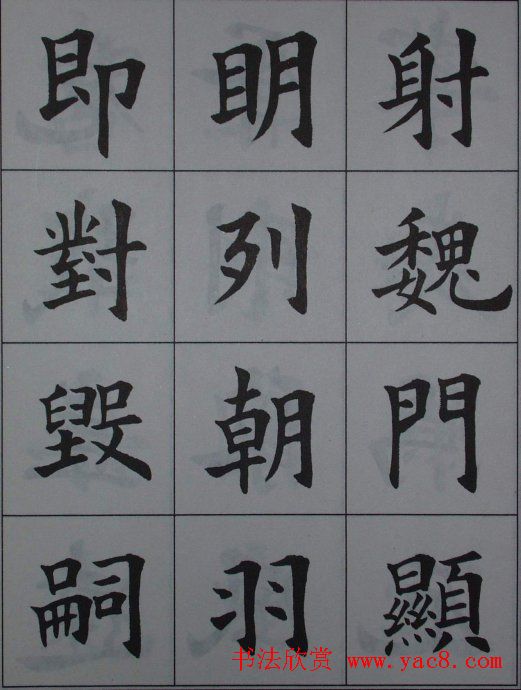 射魏門顯
眀列朝羽
即對毀嗣
书法欣赏 www.yac8.com